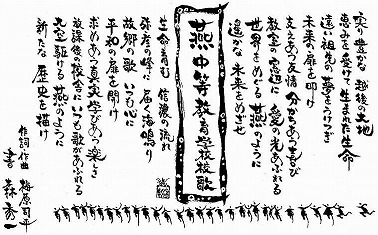 実り豊かな 越後の大地
恵みを受けて 生まれた生命
遠い祖先の 夢をうけつぎ
未来の扉を叩け
支えあう友情 分かちあう喜び
教室の窓辺に 愛の光あふれる
世界をめぐる 燕のように
遥かな 未来をめざせ
燕中等教育学校校歌
生命育む 信濃の流れ
弥彦の峰に 届く海鳴り
故郷の歌 いつも心に
平和の扉を開け
求めあう真実 学びあう楽しさ
放課後の校舎に いつも歌があふれる
大空駆ける 燕のように
新たな 歴史を描け
作詞・作曲 梅原司平
書 森